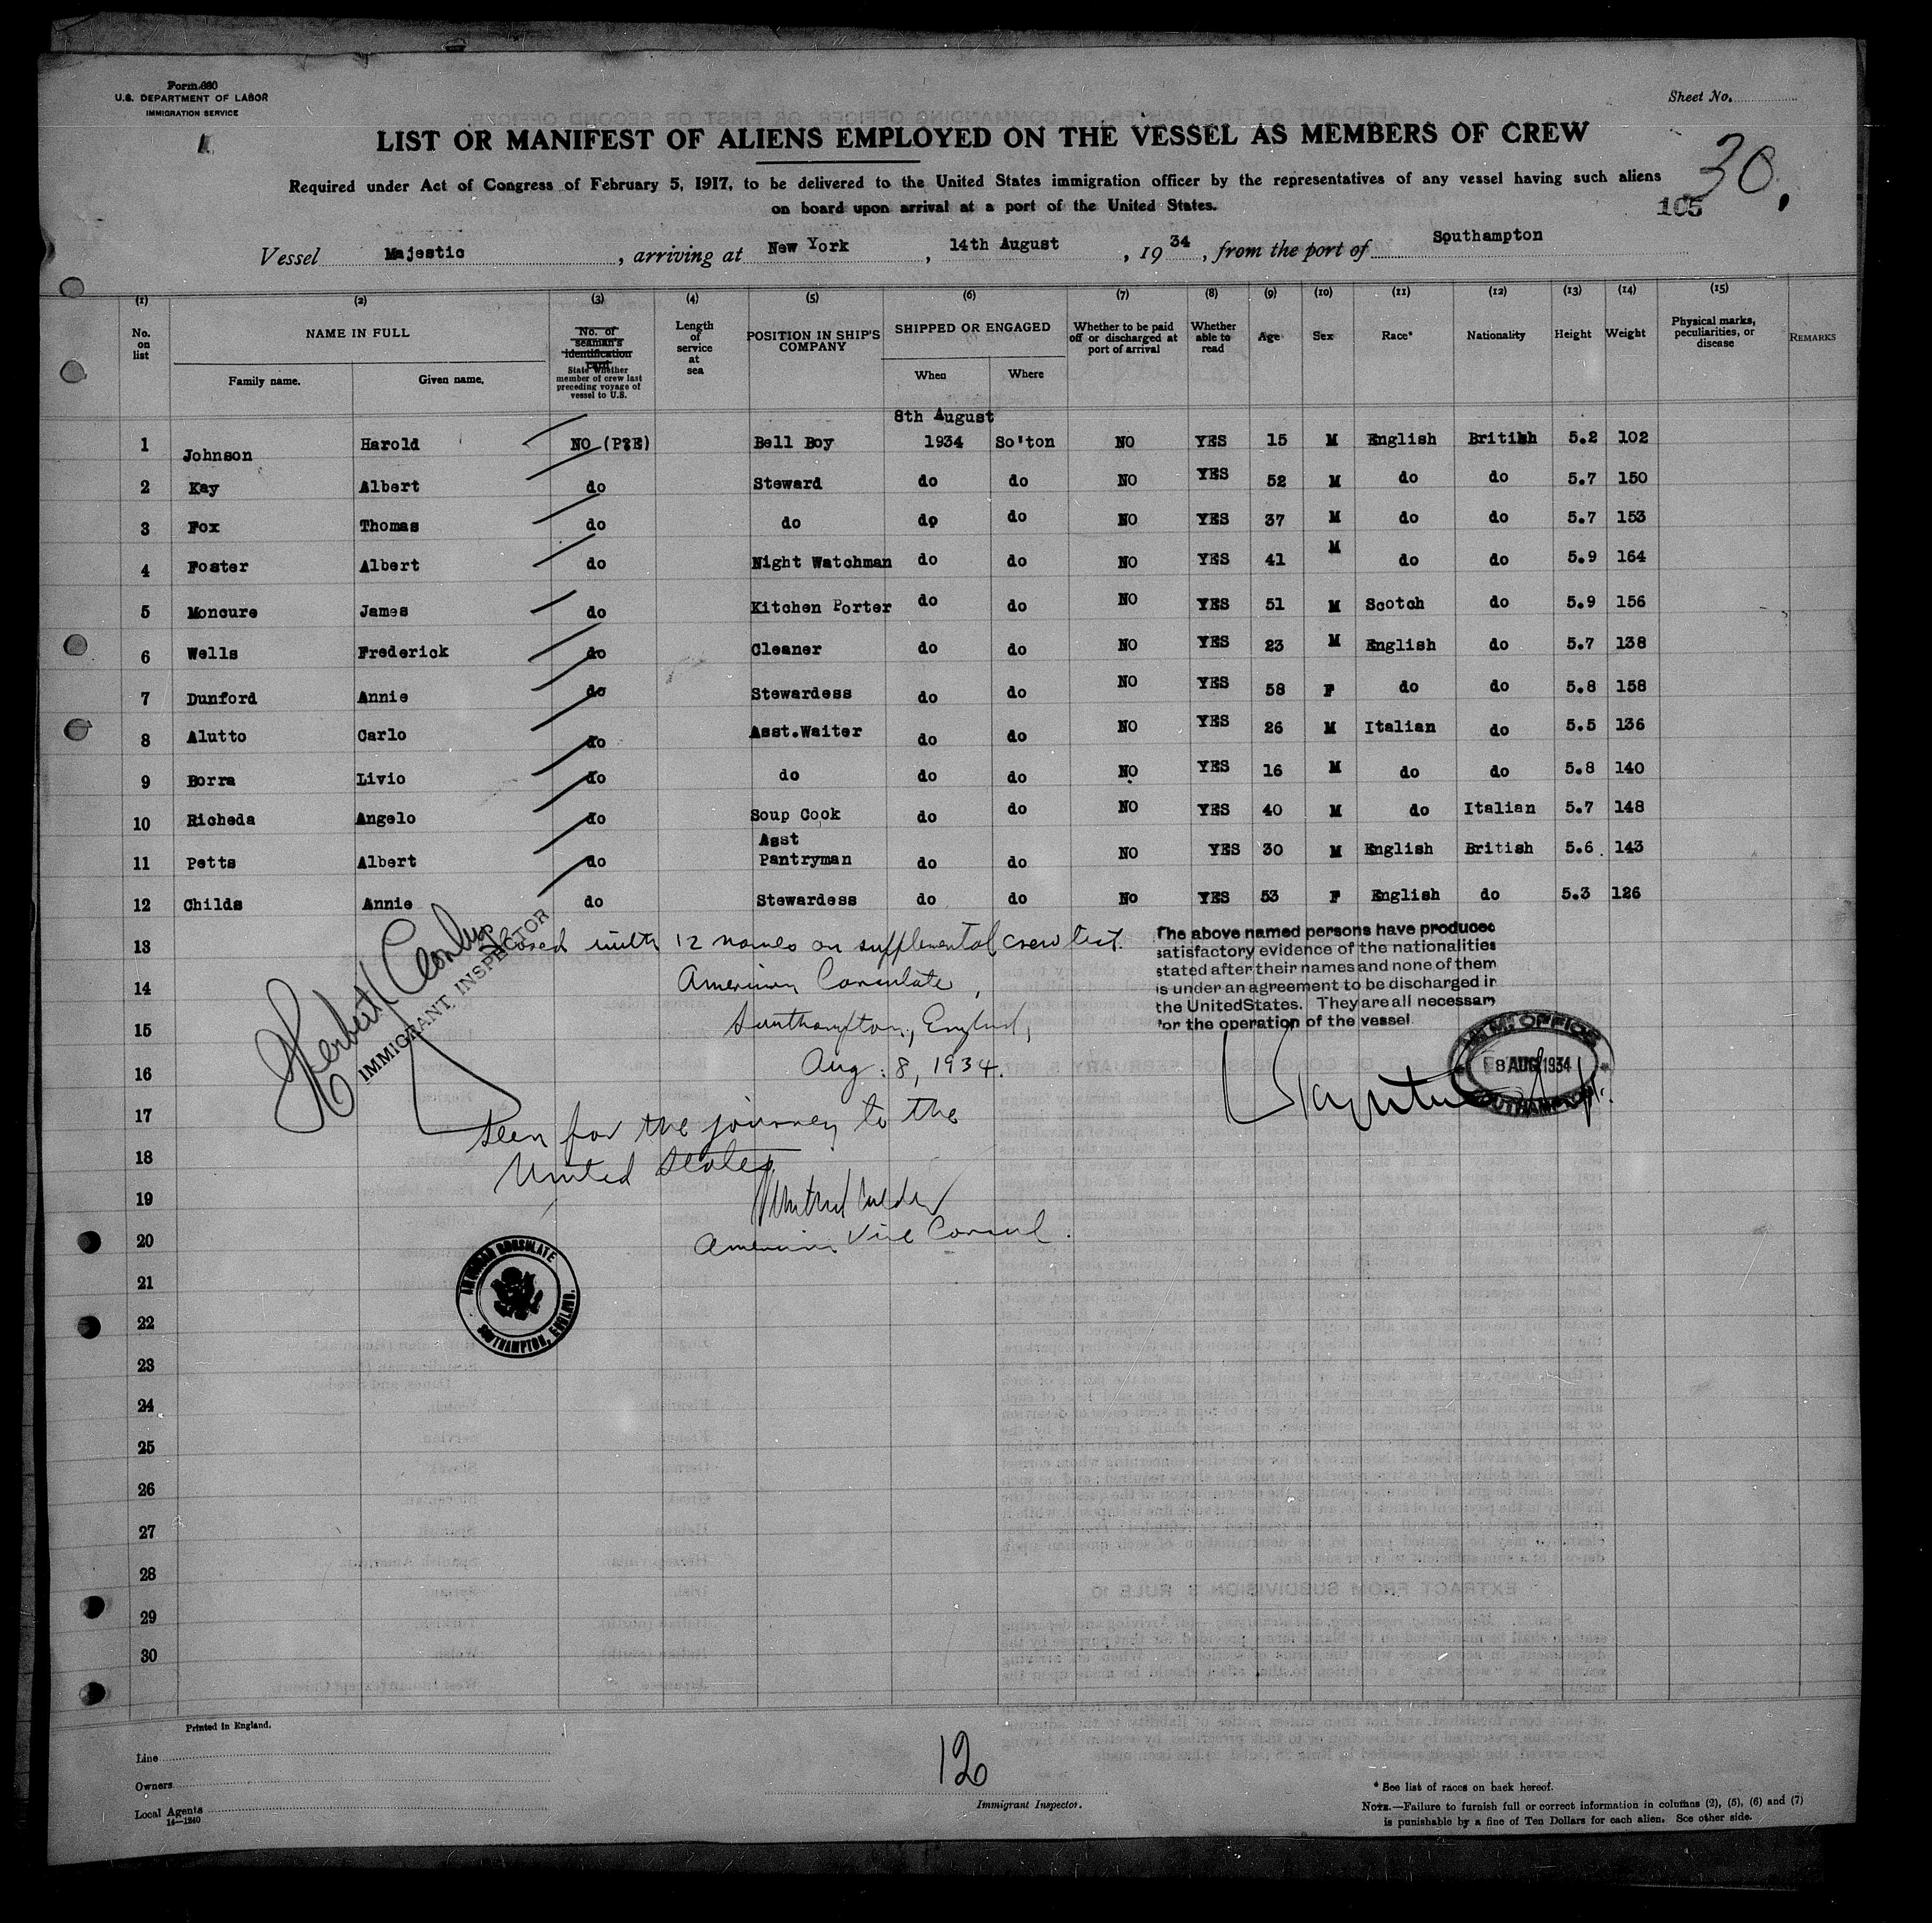 Form 680
U.S. DEPARTMENT OF LABOR
IMMIGRATION SERVICE
Sheet No.
LIST OR MANIFEST OF ALIENS EMPLOYED ON THE VESSEL AS MEMBERS OF CREW
30.
Required under Act of Congress of February 5, 1917, to be delivered to the United States immigration officer by the representatives of any vessel having such aliens
on board upon arrival at a port of the United States.
105
Vessel Majestic, arriving at New York, 14th August, 1934, from the port of Southampton
(1) (2) (3) (4) (5) (6) (7) (8) (9) (10) (11) (12) (13) (14) (15)
No. on list
NAME IN FULL
Family name. Given name.
No. of seaman's identification card
State whether member of crew last preceding voyage of vessel to U.S.
Length of service at sea
POSITION IN SHIP'S COMPANY
SHIPPED OR ENGAGED
When Where
Whether to be paid off or discharged at port of arrival
Whether able to read
Age
Sex
Race*
Nationality
Height
Weight
Physical marks, peculiarities, or disease
REMARKS
8th August
1 Johnson Harold NO (P&E) Bell Boy 1934 So'ton NO YES 15 M English British 5.2 102
2 Kay Albert do Steward do do NO YES 52 M do do 5.7 150
3 Fox Thomas do do do do NO YES 37 M do do 5.7 153
4 Foster Albert do Night Watchman do do NO YES 41 M do do 5.9 164
5 Moncure James do Kitchen Porter do do NO YES 51 M Scotch do 5.9 156
6 Wells Frederick do Cleaner do do NO YES 23 M English do 5.7 138
7 Dunford Annie do Stewardess do do NO YES 58 F do do 5.8 158
8 Alutto Carlo do Asst.Waiter do do NO YES 26 M Italian do 5.5 136
9 Borra Livio do do do do NO YES 16 M do do 5.8 140
10 Richeda Angelo do Soup Cook do do NO YES 40 M do Italian 5.7 148
Asst
11 Petts Albert do Pantryman do do NO YES 30 M English British 5.6 143
12 Childs Annie do Stewardess do do NO YES 53 F English do 5.3 126
13 Closed with 12 names on supplemental crew list.
14 American Consulate,
15 Southampton, England,
16 Aug. 8, 1934.
17 Seen for the journey to the
18 United States
19
20 American Vice Consul.
21
22
23
24
25
26
27
28
29
30
Herbert
IMMIGRANT INSPECTOR
The above named persons have produced
satisfactory evidence of the nationalities
stated after their names and none of them
is under an agreement to be discharged in
the United States. They are all necessary
for the operation of the vessel.
OFFICE
8 AUG 1934
SOUTHAMPTON
AMERICAN CONSULATE
SOUTHAMPTON, ENGLAND.
Printed in England.
Line
Owners
Local Agents
14—1240
12
Immigrant Inspector.
* See list of races on back hereof.
NOTE.—Failure to furnish full or correct information in columns (2), (5), (6) and (7)
is punishable by a fine of Ten Dollars for each alien. See other side.